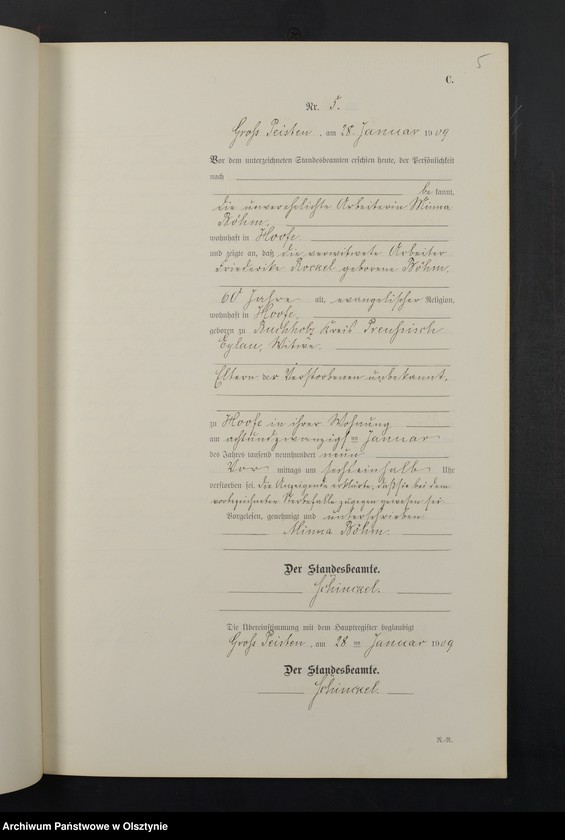 5
C.
Nr. 5.
Groß Peisten, am 28. Januar 1909
Vor dem unterzeichneten Standesbeamten erschien heute, der Persönlichkeit
nach
bekannt,
die unverehelichte Arbeiterin Minna
Böhm,
wohnhaft in Hoofe
und zeigte an, daß die verwitwete Arbeiter
Friederike Rockel geborene Böhm,
60 Jahre alt, evangelischer Religion,
wohnhaft in Hoofe,
geboren zu Buchholz Kreis Preußisch
Eylau, Witwe.
Eltern der Verstorbenen unbekannt,
zu Hoofe in ihrer Wohnung
am achtundzwanzigsten Januar
des Jahres tausend neunhundert neun
Vormittags um sechseinhalb Uhr
verstorben sei. Die Anzeigende erklärte, daß sie bei dem
vorbezeichneten Sterbefalle zugegen gewesen sei.
Vorgelesen, genehmigt und unterschrieben
Minna Böhm.
Der Standesbeamte.
Schinckel.
Die Übereinstimmung mit dem Hauptregister beglaubigt
Groß Peisten, am 28ten Januar 1909
Der Standesbeamte.
Schinckel.
R.-R.
Archiwum Państwowe w Olsztynie